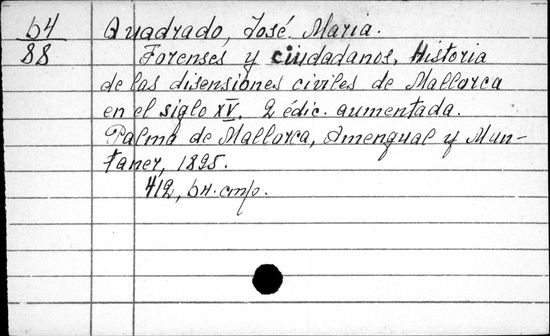 64 Quadrado, José Maria.
88 Forenses y ciudadanos. Historia
de las disensiones civiles de Mallorca
en el siglo XV. 2 édic. aumentada.
Palma de Mallorca, Amengual y Mun-
taner, 1895.
412, 64. cmp.